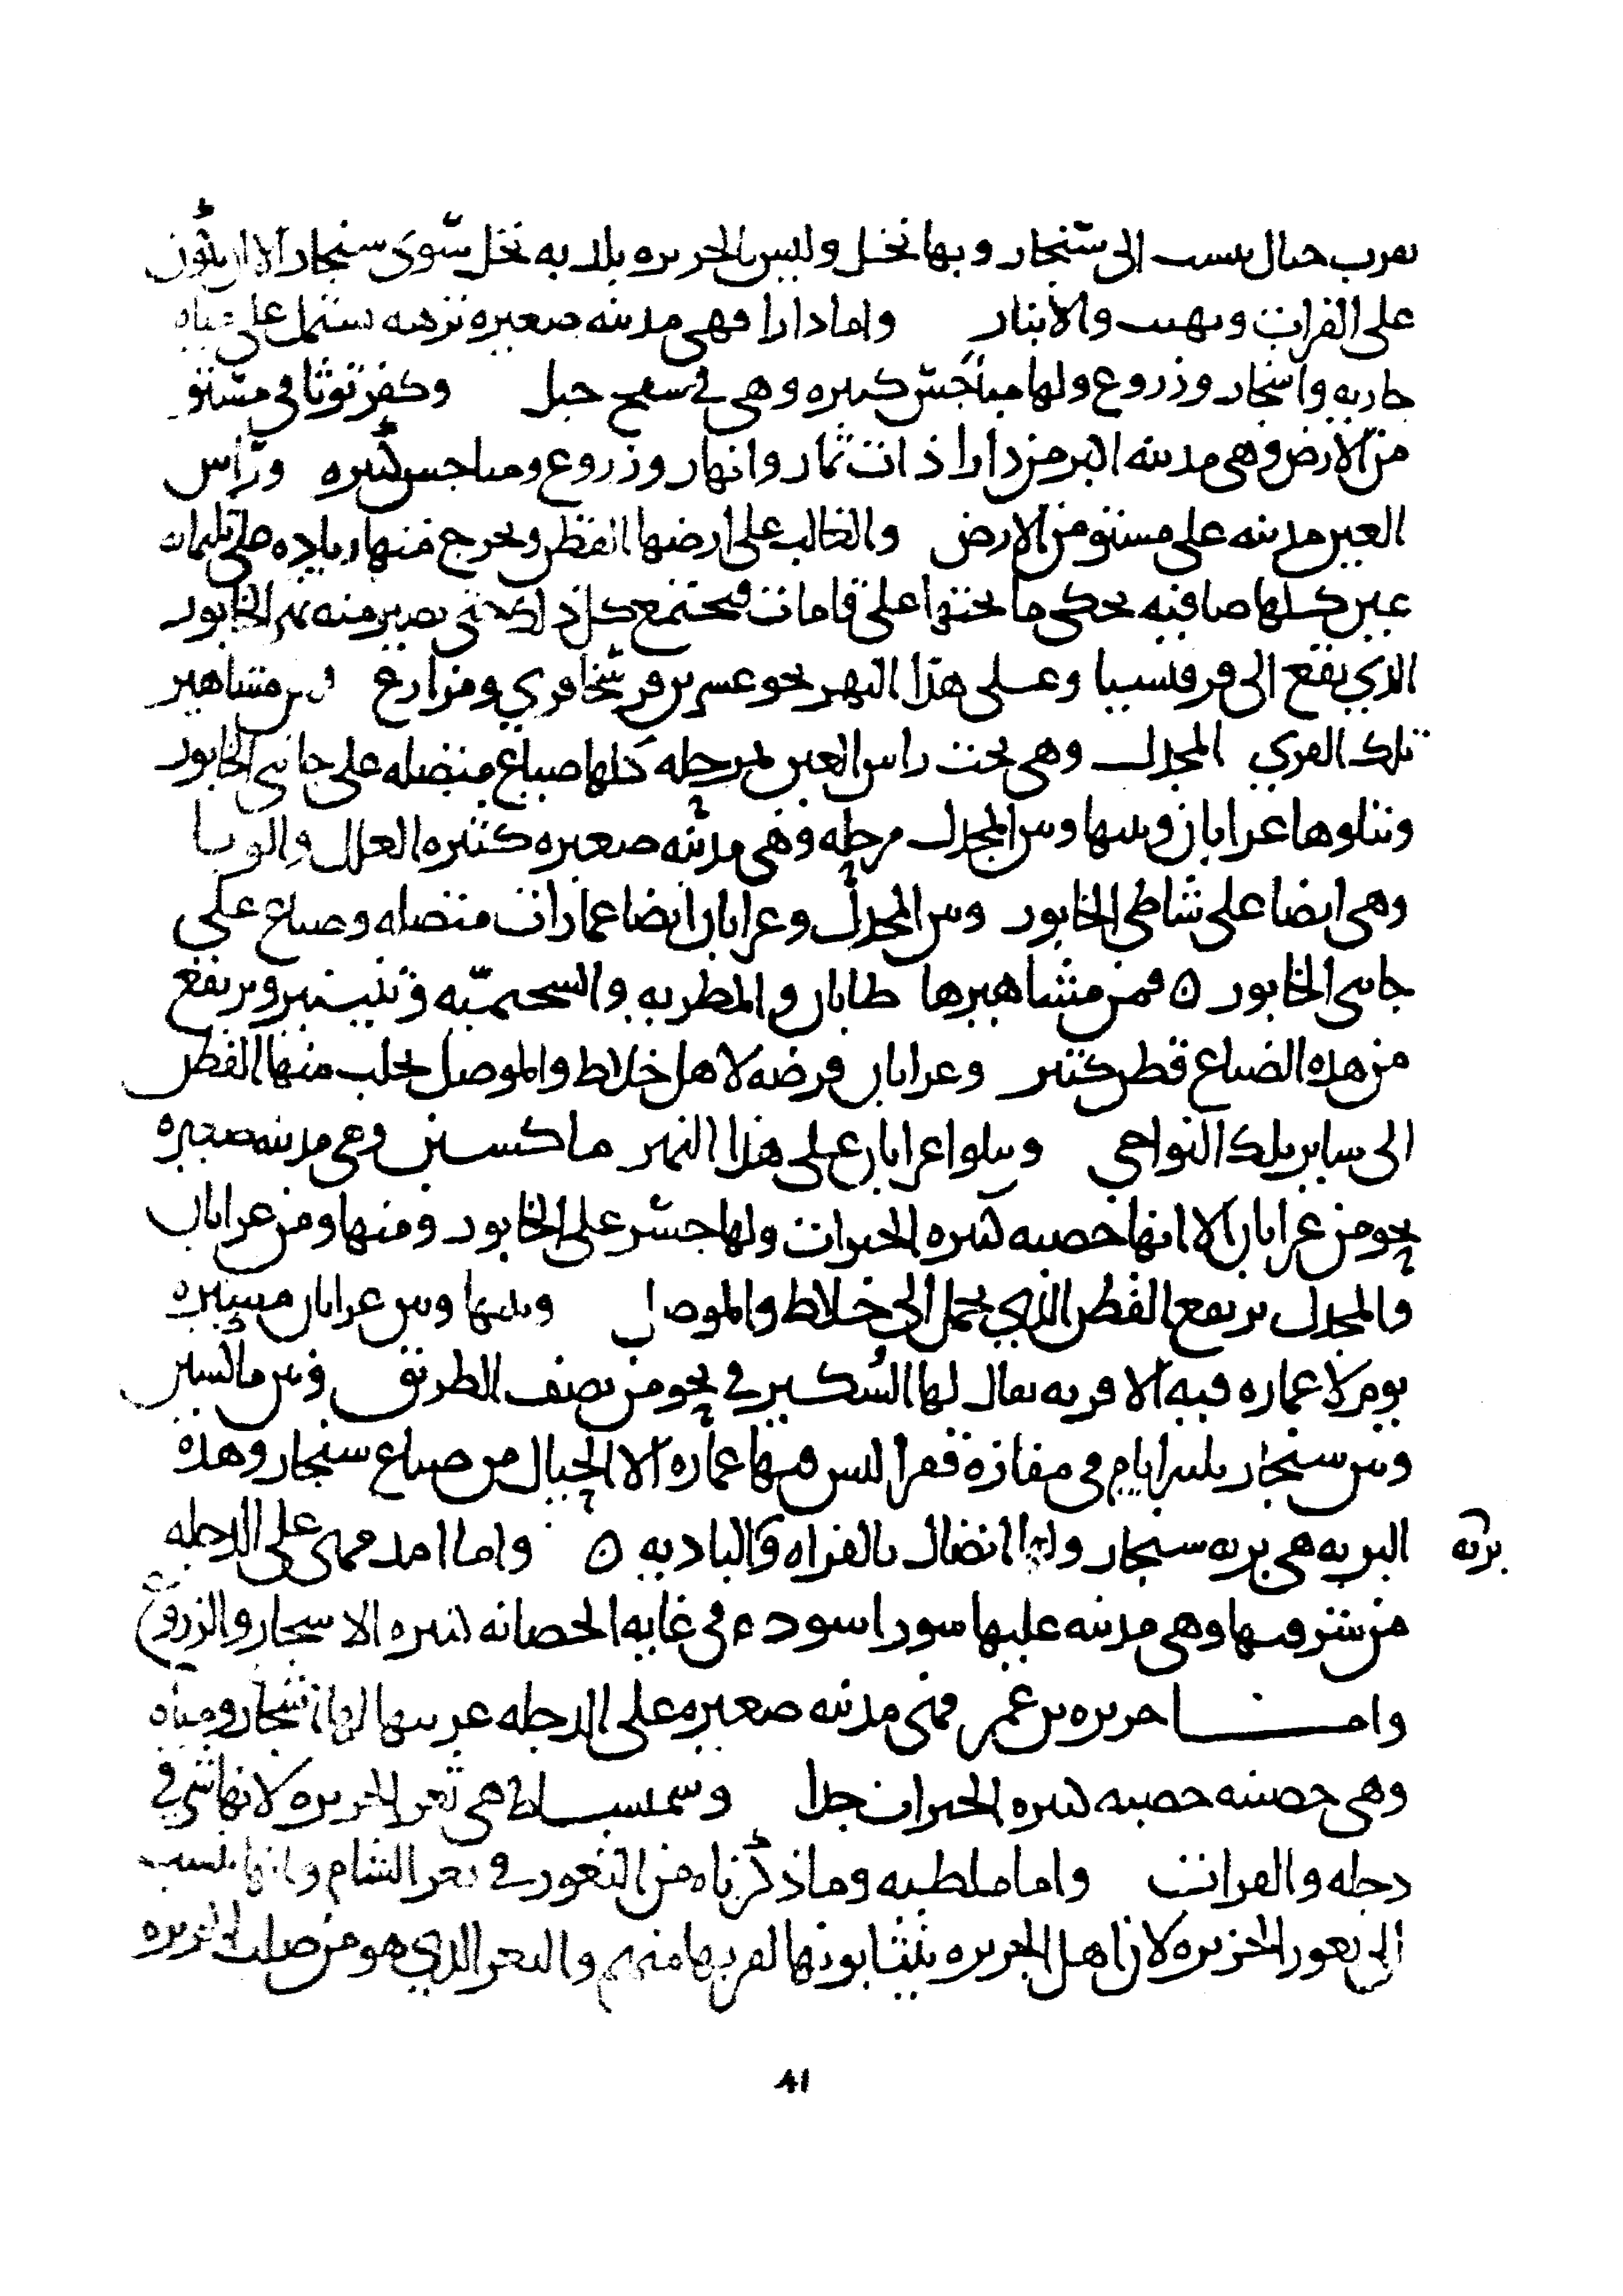 بقرب جبال ينسب الى سنجار وبها نخل وليس بالجزيره بلد به نخل سوى سنجار الا ان يكون
على الفرات وبهيت والانبار واما دارا فهى مدينه صغيره نزهه تشتمل على مياه
جاريه واشجار وزروع ولها مباخس كثيره وهى فى سفح جبل وكفرتوثا فى مستو
من الارض وهى مدينه اكبر من دارا ذات ثمار وانهار وزروع ومباخس كثيره وراس
العين مدينه على مستو من الارض والغالب على ارضها القطن ويخرج منها زياده على ثلثمائه
عين كلها صافيه يحكى ما تحتها على قامات فيجتمع كل ذلك حتى يصير منه نهر الخابور
الذي يقع الى قرقيسيا وعلى هذا النهر نحو عشرين فرسخا قري ومزارع ومن مشاهير
تلك القري المجدل وهى تحت راس العين بمرحله كلها ضياع متصله على جانبى الخابور
وتتلوها عرابان وبينها وبين المجدل مرحله وهى مدينه صغيره كثيره العلل والوبا
وهى ايضا على شاطى الخابور وبين المجدل وعرابان ايضا عمارات متصله وضياع على
جانبى الخابور ٥ فمن مشاهيرها طابان والمطريه والسحميه وتنينير ويرتفع
من هذه الضياع قطن كثير وعرابان فرضه لاهل خلاط والموصل يجلب منها القطن
الى ساير تلك النواحي ويتلوا عرابان على هذا النهر ماكسين وهى مدينه صغيره
نحو من عرابان الا انها خصبه كثيره الخيرات ولها جسر على الخابور ومنها ومن عرابان
والمجدل يرتفع القطن الذي يحمل الى خلاط والموصل وبينها وبين عرابان مسيره
يوم لا عماره فيه الا قريه يقال لها السكير فى نحو من نصف الطريق وبين ماكسين
وبين سنجار ثلثه ايام فى مفازة قفرا ليس فيها عماره الا الجبال من ضياع سنجار وهذه
البريه هى بريه سنجار ولها اتصال بالفراه والباديه ٥ واما امد فهى على الدجله
بريه
من شرقيها وهى مدينه عليها سور اسود فى غايه الحصانه كثيره الاشجار والزروع
واما جزيره بن عمر فهى مدينه صغيره على الدجله غربيها لها اشجار ومياه
وهى حصينه خصبه كثيره الخيرات جدا وسميساط هى ثغر الجزيره لانها شي فى
دجله والفرات واما ملطيه وما ذكرناه من الثغور فى ثغر الشام وانها تنسب
الى ثغور الجزيره لان اهل الجزيره ينتابونها لقربها منهم والثغر الذي هو من صلب الجزيره
41